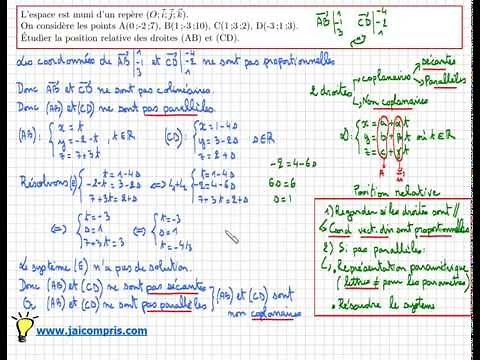 L'espace est muni d'un repère (O; i⃗; j⃗; k⃗).
On considère les points A(0;-2;7), B(1;-3;10), C(1;3;2), D(-3;1;3).
Étudier la position relative des droites (AB) et (CD).
AB⃗ | 1 -1 3   CD⃗ | -4 -2 1
Les coordonnées de AB⃗ | 1 -1 3 et CD⃗ | -4 -2 1 ne sont pas proportionnelles
Donc AB⃗ et CD⃗ ne sont pas colinéaires.
Donc (AB) et (CD) ne sont pas parallèles.
(AB): { x = t
y = -2-t
z = 7+3t , t∈ℝ
(CD): { x = 1-4s
y = 3-2s
z = 2+s , s∈ℝ
Résolvons (E) { t = 1-4s
-2-t = 3-2s
7+3t = 2+s
⇔ L1+L2 { t = 1-4s
-2 = 4-6s
7+3t = 2+s
-2 = 4-6s
6s = 6
s = 1
⇔ { t = -3
s = 1
7+3t = 3
⇔ { t = -3
s = 1
t = -4/3
Le système (E) n'a pas de solution.
Donc (AB) et (CD) ne sont pas sécantes
Or (AB) et (CD) ne sont pas parallèles } (AB) et (CD) sont
non coplanaires
2 droites
coplanaires
sécantes
Parallèles
Non coplanaires
{ x = a+αt
y = b+βt
z = c+γt où t∈ℝ
A
Position relative
1) Regarder si les droites sont //
Coord vect. dir sont proportionnelles
2) Si pas parallèles:
Représentation paramétrique
(lettres ≠ pour les paramètres)
Résoudre le système
www.jaicompris.com